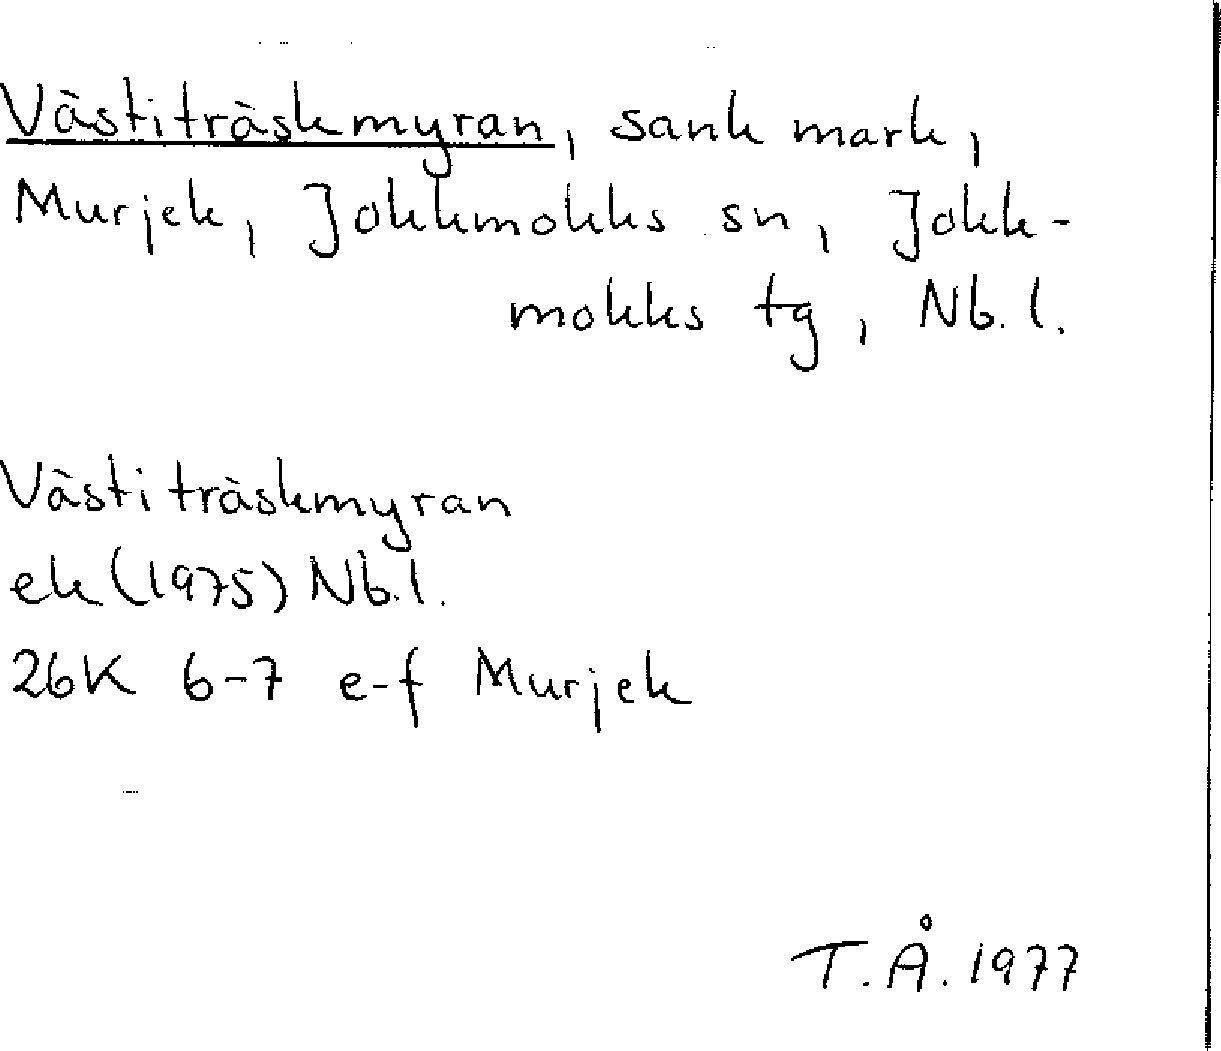 Västiträskmyran, sank mark,
Murjek, Jokkmokks sn, Jokk-
mokks tg, Nb.l.
Västiträskmyran
ek (1975) Nb.l.
26K 6-7 e-f Murjek
T.Å. 1977